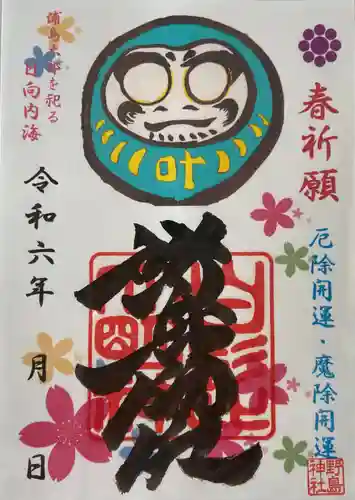 春祈願
厄除開運・魔除開運
野島
神社
叶
浦島太郎を祀る
日向内海
令和六年
月
日